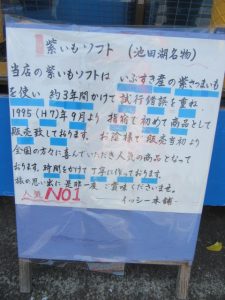 紫いもソフト (池田湖名物)
当店の紫いもソフトは いぶすき産の紫さつまいも
を使い 約3年間かけて 試行錯誤を重ね
1995 (H7)年9月より 指宿で初めて商品として
販売致しております。お蔭様で販売当初より
全国の方々に喜んでいただき人気の商品となって
おります。時間をかけて丁寧に作っております。
旅の思い出に是非一度ご賞味くださいませ。
人気 NO1 ―イッシー本舗―